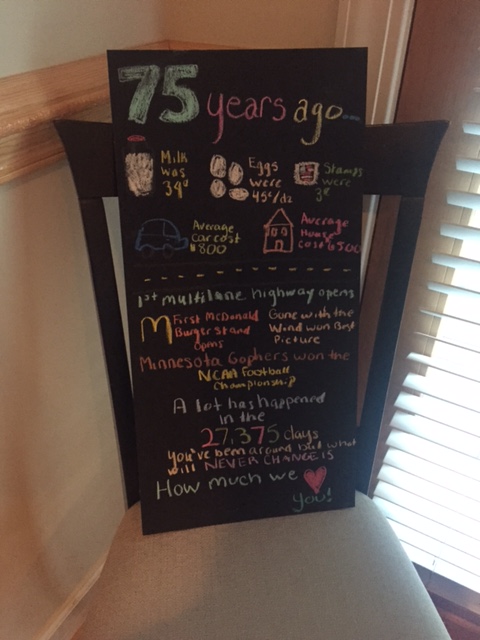 75 years ago...
Milk
was
34¢
Eggs
were
45¢/dz
Stamps
were
3¢
Average
Car cost
$800
Average
House
cost 6500
1st multilane highway opens
M First McDonald
Burger stand
opens
Gone with the
Wind won Best
Picture
Minnesota Gophers won the
NCAA Football
Championship
A lot has happened
in the
27,375 days
you've been around but what
will NEVER CHANGE IS
How much we
you!